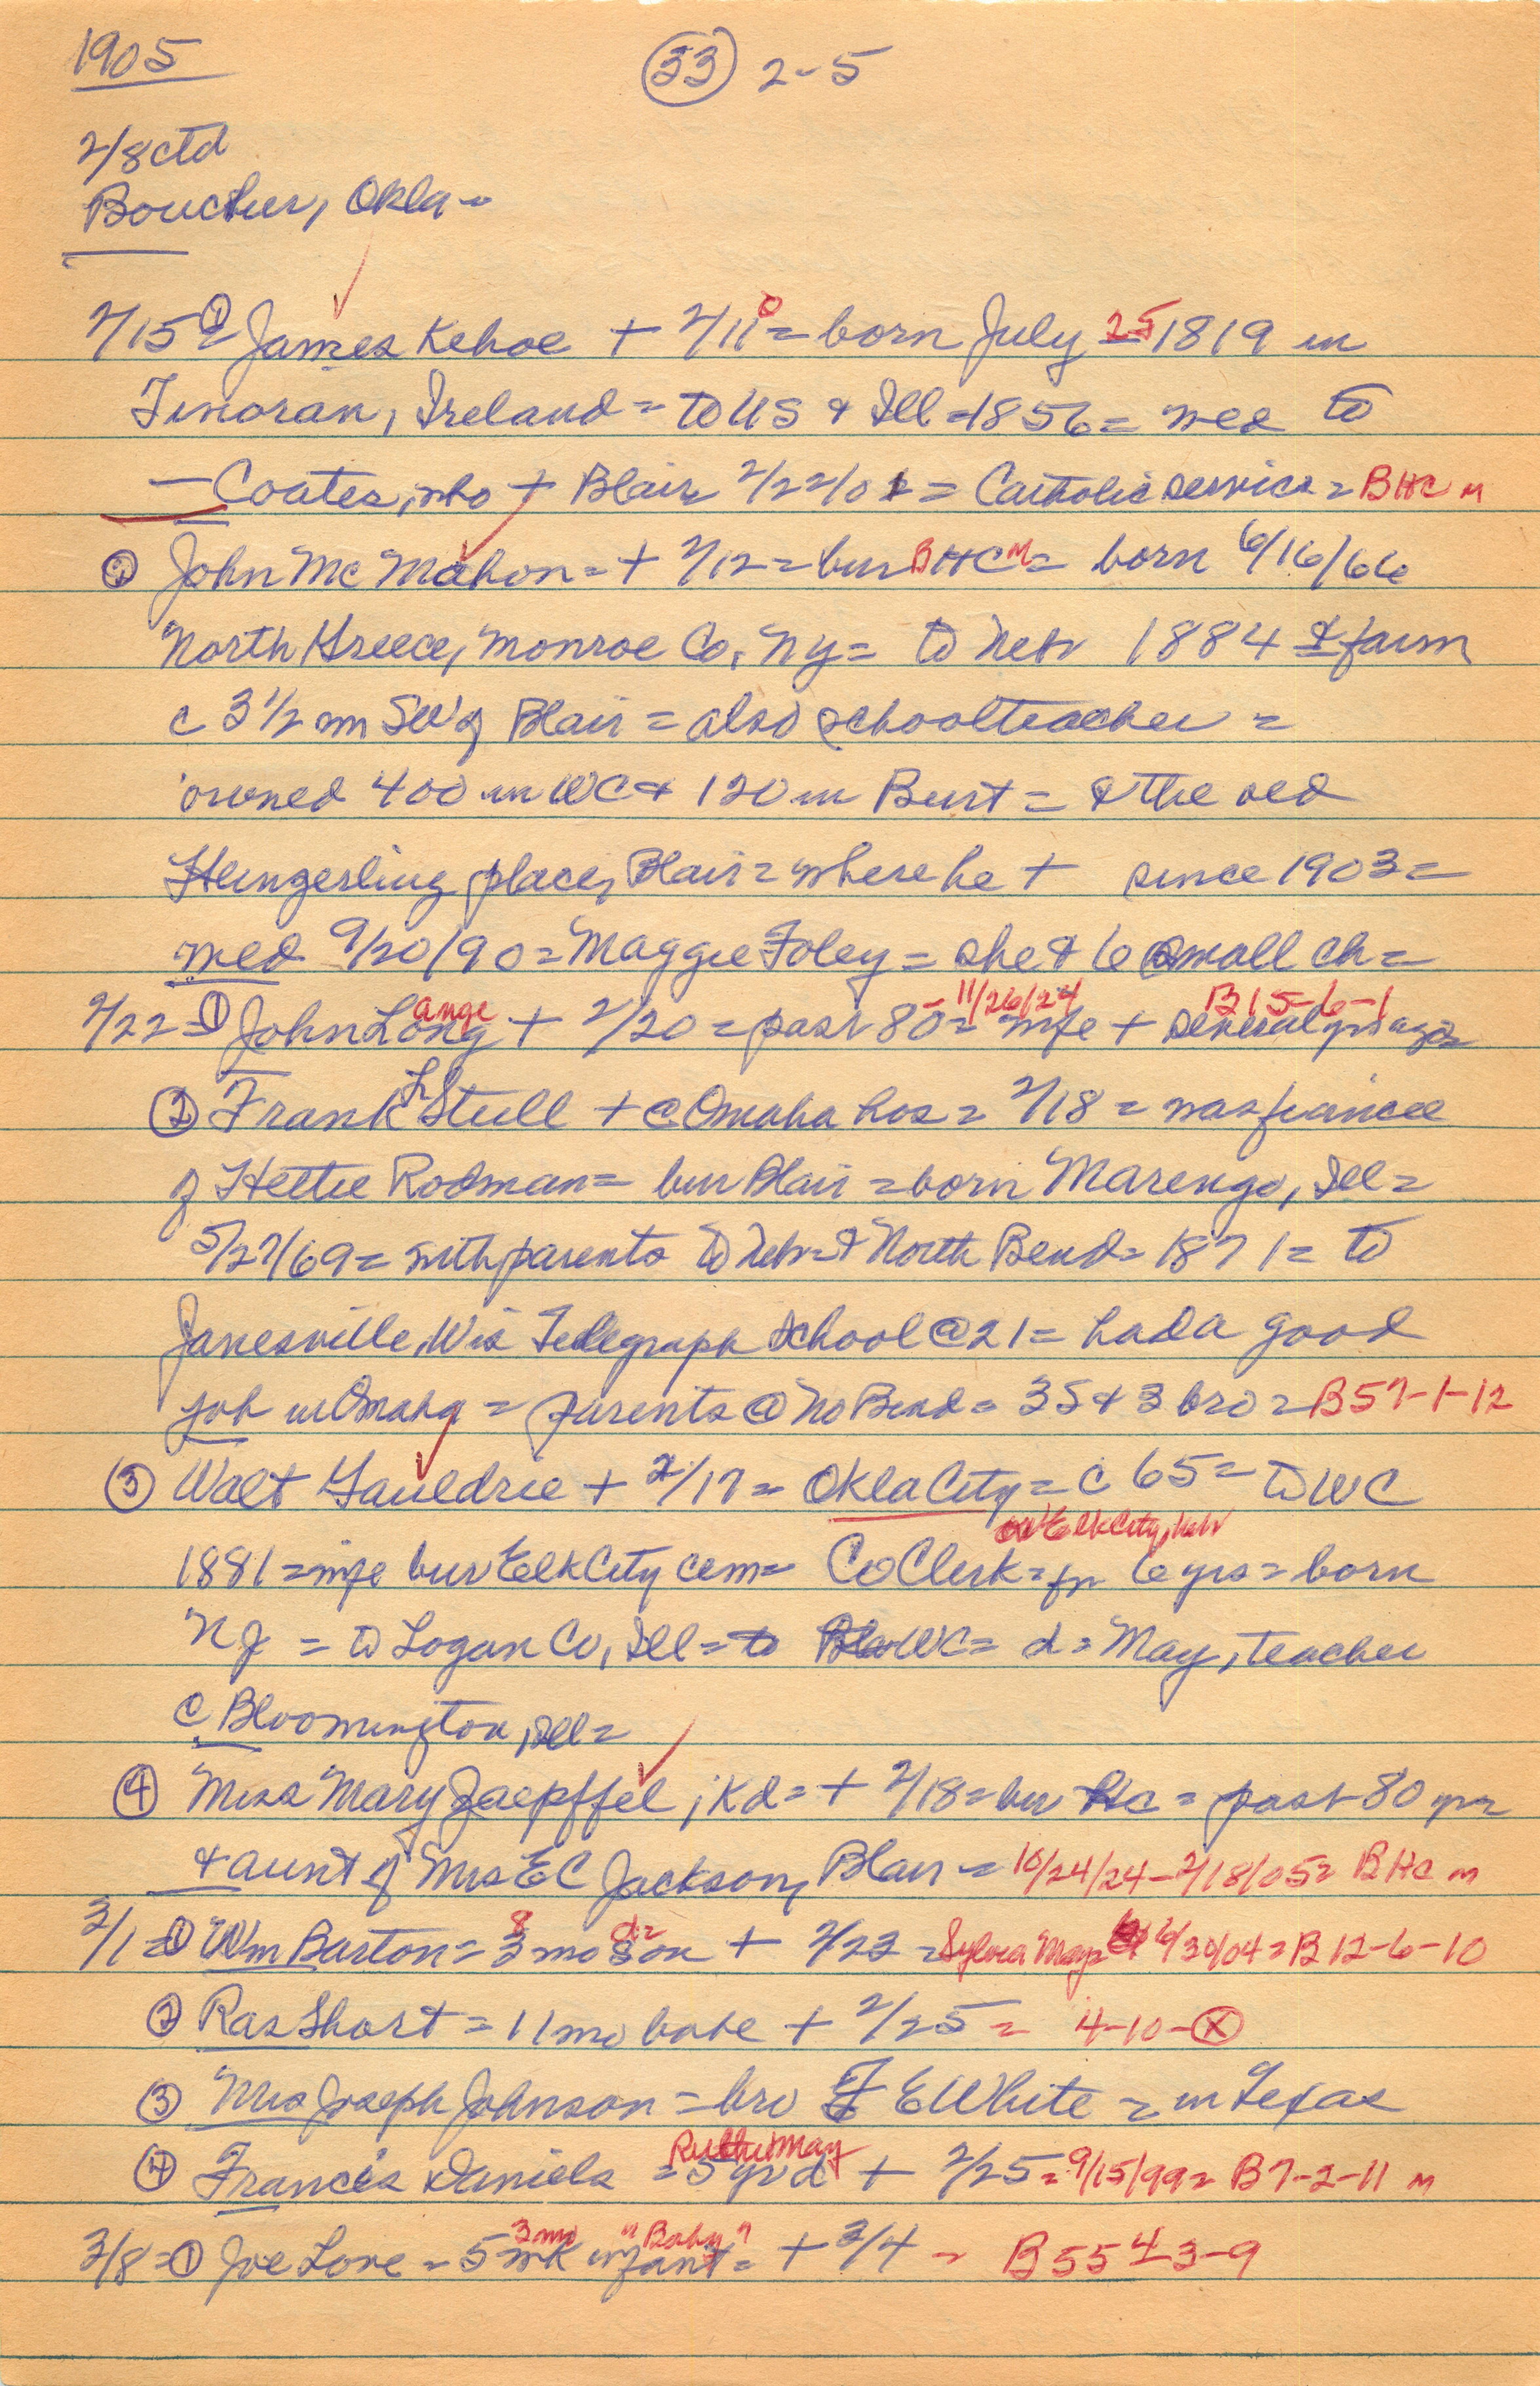 1905
(33) 2-5
2/8 ctd
Boucher, Okla -
2/15 = ① James Kehoe + 2/11 0 = born July 25 1819 in
Tinoran, Ireland = to US & Ill = 1856 = med to
— Coates, who + Blair 2/22/01 = Catholic service = BHC M
② John McMahon = + 2/12 = bur BHC M = born 6/16/66
North Greece, Monroe Co, NY = to Neb 1884 & farm
c 3 1/2 m SW of Blair = also schoolteacher =
owned 400 in WC & 120 in Burt = & the old
Hungerling place, Blair = where he + since 1903 =
med 9/20/90 = Maggie Foley = she & 6 small ch =
ange - 11/26/24 B15-6-1
2/22 = ① John Long + 2/20 = past 80 = wife + several yrs ago =
② Frank L Stull + @ Omaha hos = 2/18 = was fiancee
of Hettie Rodman = bur Blair = born Marengo, Ill =
5/27/69 = with parents to Neb = & North Bend = 1871 = to
Janesville, Wis Telegraph School @ 21 = had a good
job in Omaha = parents @ No Bend = 3S & 3 bro = B57-1-12
③ Walt Gauldrie + 2/17 = Okla City = c 65 = to WC
or Elk City, Neb
1881 = wife bur Elk City cem = Co Clerk = for 6 yrs = born
NJ = to Logan Co, Ill = to WC = d = May, teacher
@ Bloomington, Ill =
④ Miss Mary Jaepffel, Kd = + 2/18 = bur Hc = past 80 yrs
& aunt of Mrs EC Jackson, Blair = 10/24/24 - 2/18/05 = BHC M
8 d =
3/1 = ① Wm Barton = 3 mo son + 2/23 = Sylvia May = 6/30/04 = B12-6-10
② Ras Short = 11 mo babe + 2/25 = 4-10-Ⓧ
③ Mrs Joseph Johnson = bro E White = in Texas
Ruthie May
④ Francis Daniels = 5 yr d + 2/25 = 9/15/99 = B7-2-11 M
3 mo "Baby"
3/8 = ① Joe Love = 5 wk infant = + 3/4 = B55 4-3-9